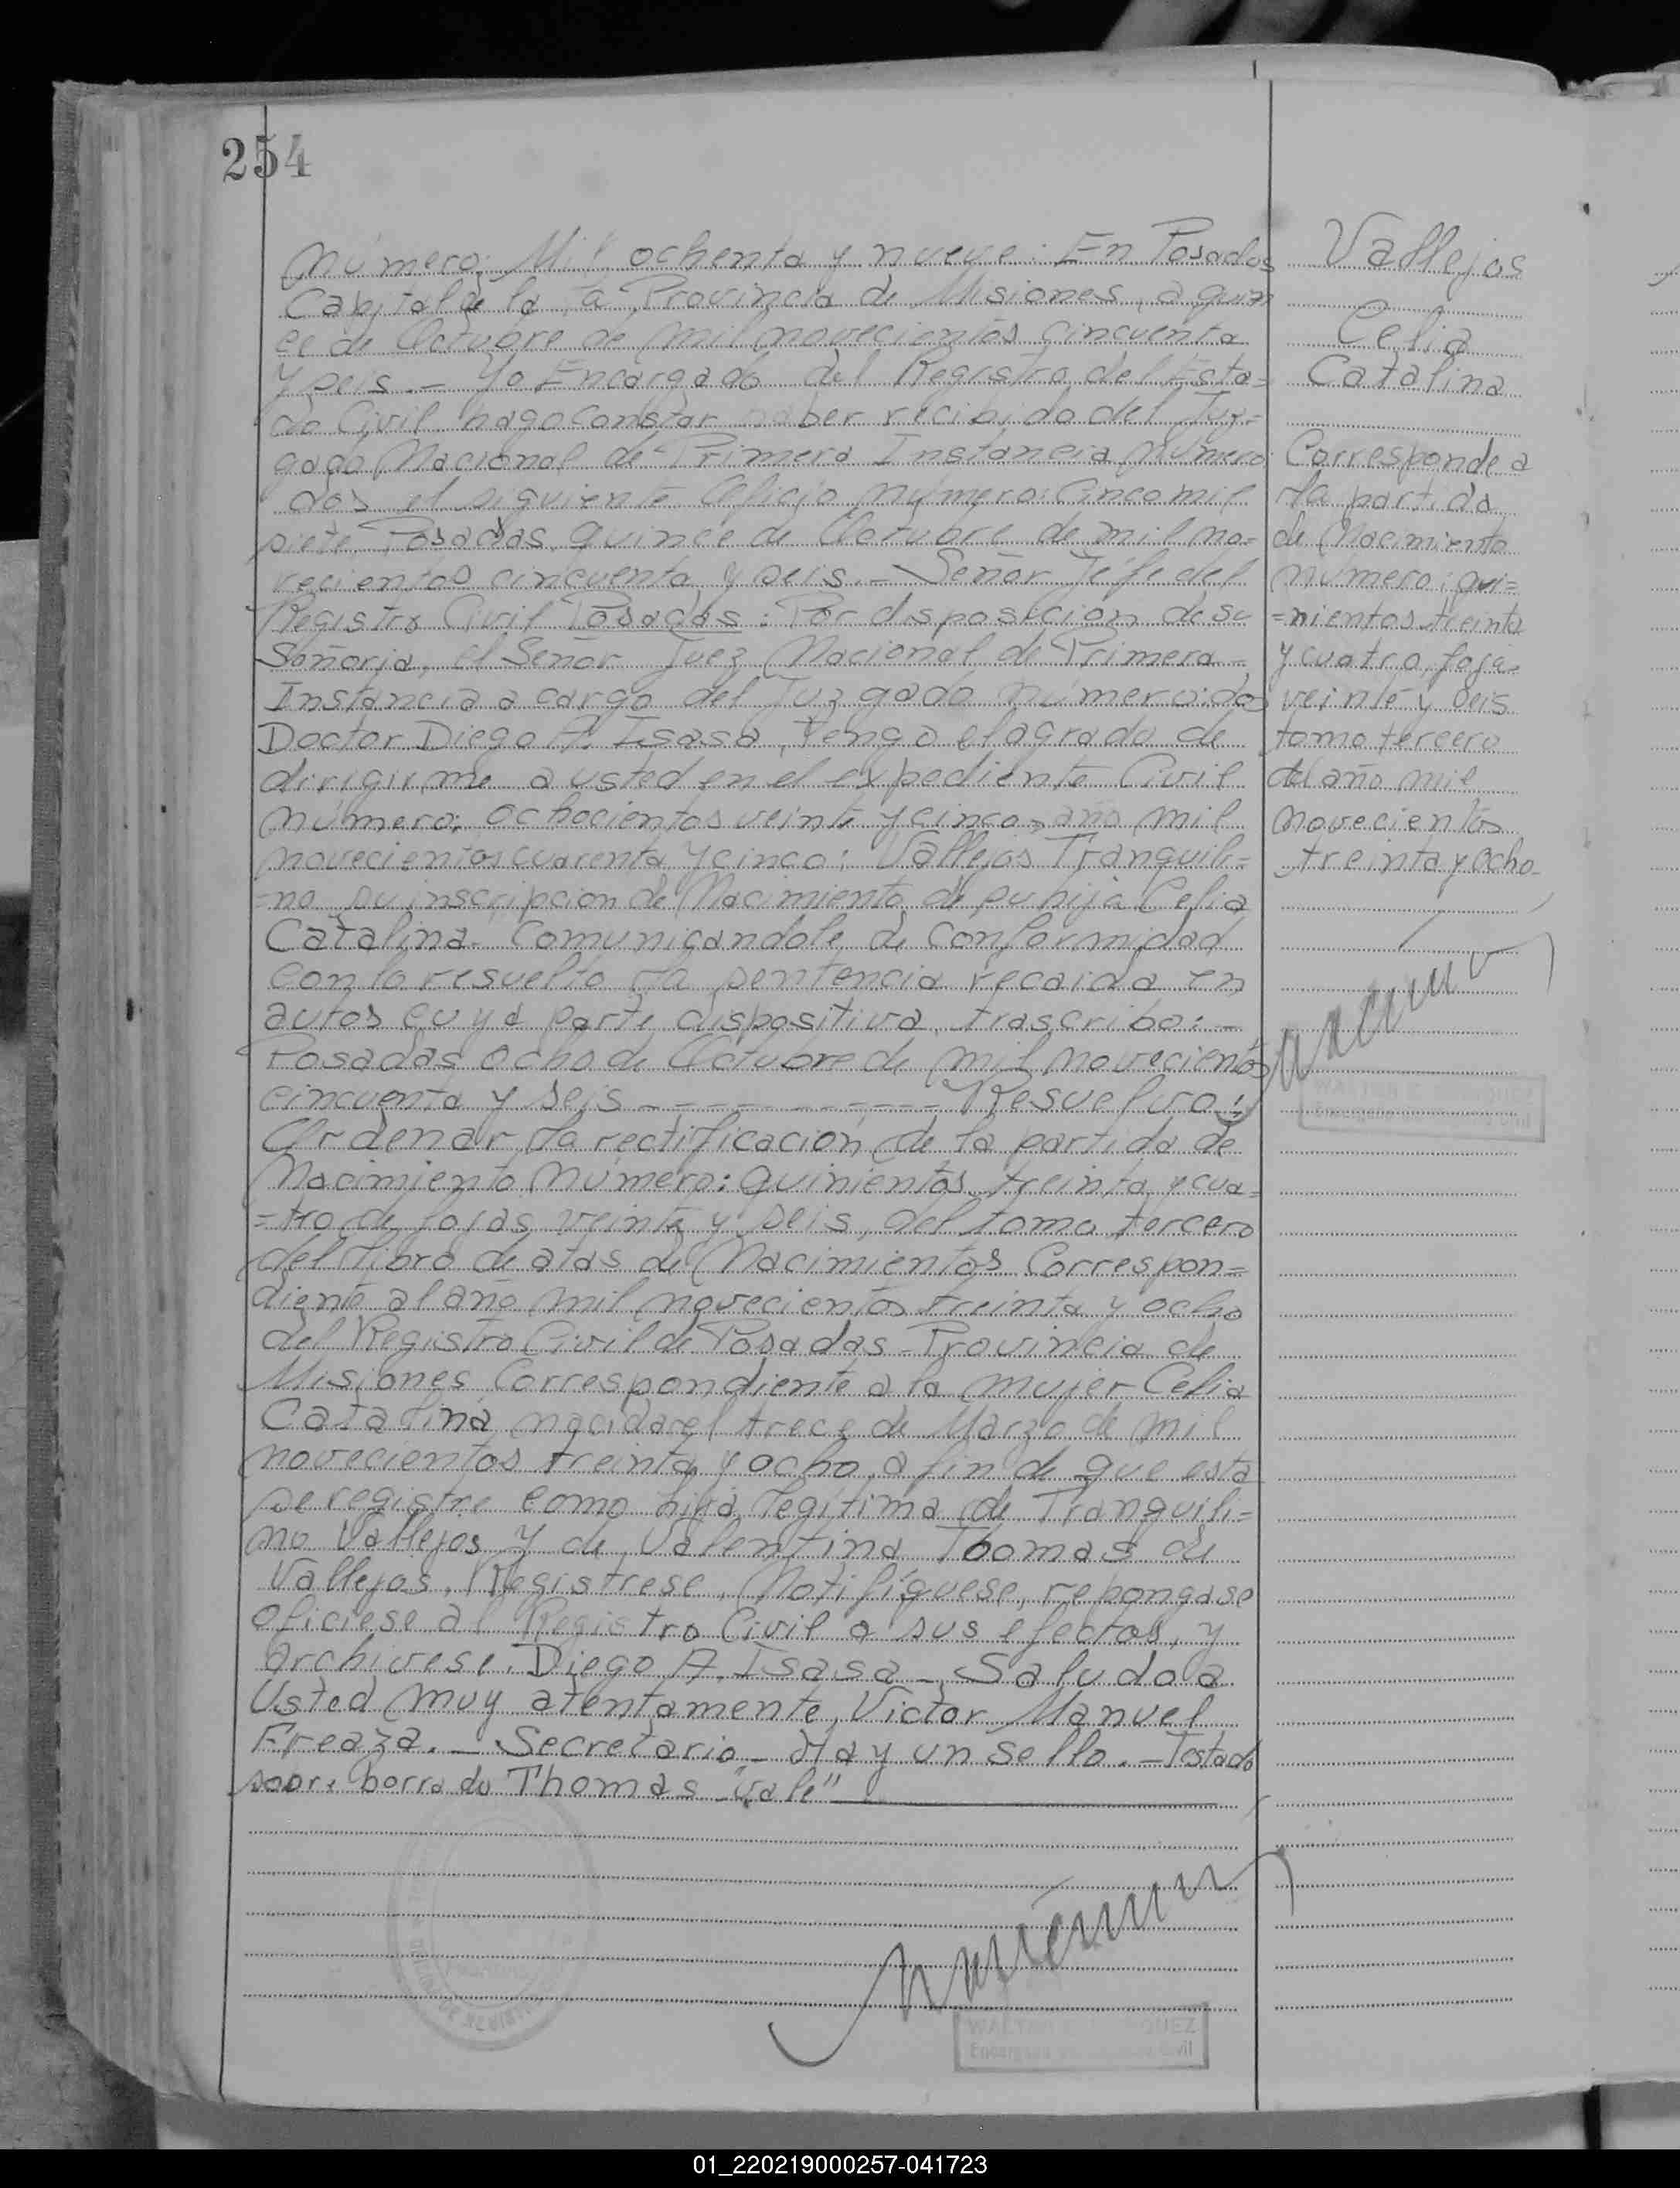 254
Número: Mil ochenta y nueve: En Posadas
Capital de la ta Provincia de Misiones, a quin
ce de Octubre de mil novecientos cincuenta
y seis. – Yo Encargado del Registro del Esta=
do Civil hago constar haber recibido del Juz=
gado Nacional de Primera Instancia, Número
dos el siguiente Oficio número: Cinco mil
siete, Posadas, quince de Octubre de mil no=
vecientos cincuenta y seis. – Señor Jefe del
Registro Civil Posadas: Por disposicion de su
Señoria, el Señor Juez Nacional de Primera –
Instancia a cargo del Juzgado número: dos
Doctor Diego A. Isasa, Tengo el agrado de
dirigirme a usted en el expediente Civil
número: ochocientos veinte y cinco, año mil
novecientos cuarenta y cinco: Vallejos Tranquili=
=no su inscripcion de Nacimiento de su hija Celia
Catalina. Comunicandole de conformidad
con lo resuelto la sentencia recaida en
autos cuya parte dispositiva, trascribo: –
Posadas ocho de Octubre de mil novecientos
cincuenta y seis – – – – – – – – Resuelvo:
Ordenar la rectificación de la partida de
Nacimiento Número: quinientos treinta y cua=
=tro de fojas veinte y seis, del tomo tercero
del libro de atas de Nacimientos Correspon=
diente al año mil novecientos treinta y ocho
del Registro Civil de Posadas – Provincia de
Misiones Correspondiente a la mujer Celia
Catalina, nacida el trece de Marzo de mil
novecientos treinta y ocho, a fin de que esta
se registre como hija legítima de Tranquili=
no Vallejos y de Valentina Thomas de
Vallejos. Registrese, Notifíquese, repongase
oficiese al Registro Civil a sus efectos, y
archivese. Diego A. Isasa – Saludo a
Usted muy atentamente, Victor Manuel
Freaza. – Secretario – Hay un sello. – Testado
sobre borrado Thomas – "Vale"
Vallejos
Celia
Catalina
Corresponde a
la partida
de Nacimiento
número: qui=
=nientos treinta
y cuatro, foja
veinte y seis
tomo tercero
del año mil
novecientos
treinta y ocho
01_220219000257-041723